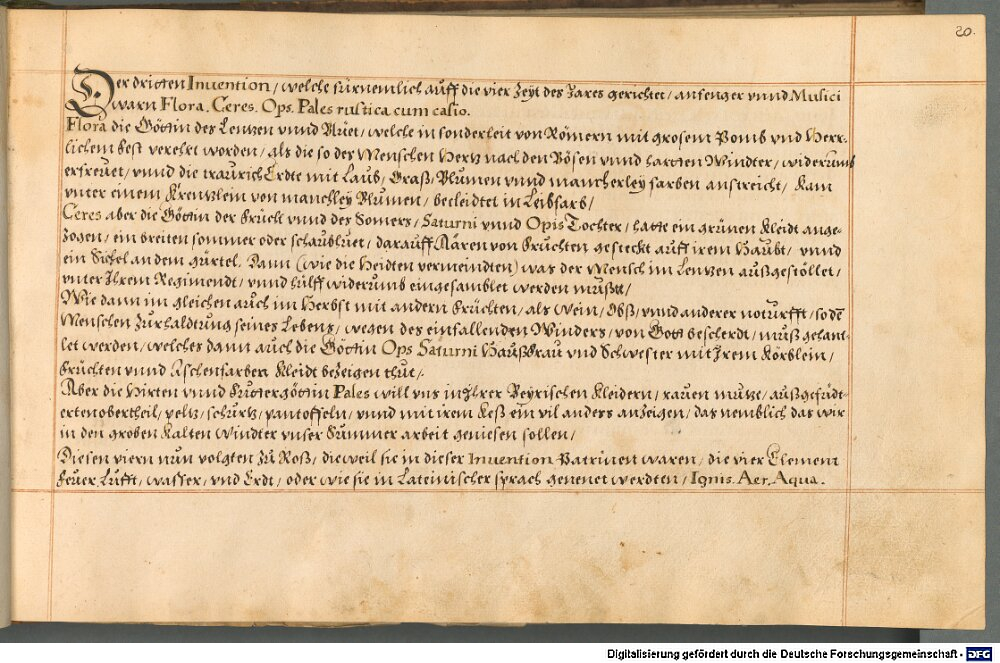 20.
Der dritten Invention / welche fürnemlich auff die vier Zeyt des Jares gerichtet / anfenger vnnd Musici
warn Flora. Ceres. Ops. Pales rustica cum casio.
Flora die Göttin des Lenntzen vnnd Blüet / welche in sonderleit von Römern mit grosem Pomb vnd Herr-
lichem fest verehrt worden / als die so des Menschen Hertz nach den Bösen vnnd harten Windter / widerumb
erfreüet / vnnd die traurich Erdte mit Laub / Graß / Blumen vnnd mancherley farben anstreicht / Kam
vnter einem Krentzlein von manchley Blumen / becleidtet in Leibfarb /
Ceres aber die Göttin der Frücht vnnd des Somers / Saturni vnnd Opis Tochter / hatte ein grünen Kleidt ange-
zogen / ein breiten sommer oder schaubhuet / darauff Äären von Früchten gesteckt auff irem Haubt / vnnd
ein Sichel an dem gürtel. Dann (wie die Heidten vermeindten) was der Mensch im Lentzen außgestöllet /
vnter Ihrem Regimendt / vnnd hülff widerumb eingesamblet werden müßtt /
Wie dann im gleichen auch im Herbst mit andern Früchten / als Wein / Obß / vnnd anderer noturfft / so dē
Menschen zur haldtung seines Lebens / wegen des einfallenden Winders / von Gott bescherdt / muß gehand-
let werden / welches dann auch die Göttin Ops Saturni Haußfrau vnd Schwester mit Irem Körblein /
Früchten vnnd Aschenfarben Kleidt bezeigen thut /.
Aber die Hirten vnnd Futtergöttin Pales will vns in Ihrer Beyrischen Kleidern / rauen mutze / außgefüdt-
erten obertheil / peltz / schurtz / pantoffeln / vnnd mit irem Keß ein vil anders anzeigen / das nemblich das wir
in den groben Kalten Windter vnser Summer arbeit geniesen sollen /
Diesen viern nun volgten zu Roß / dieweil sie in dieser Invention Patrinen waren / die vier Element
Feuer / Lufft / wasser / vnd Erdt / oder wie sie in Lateinischer sprach genenet werdten / Ignis. Aer. Aqua.
Digitalisierung gefördert durch die Deutsche Forschungsgemeinschaft - DFG